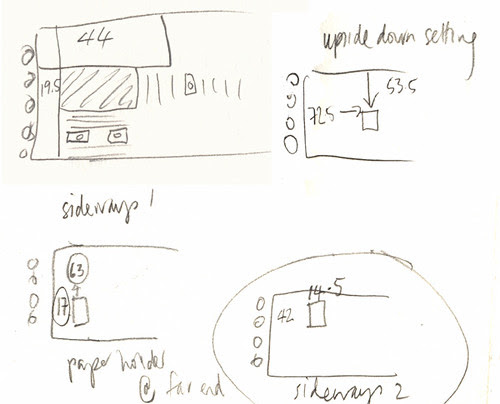 44
19.5
upside down setting
53.5
72.5
sideways 1
63
17
paper holder
@ far end
14.5
42
sideways 2